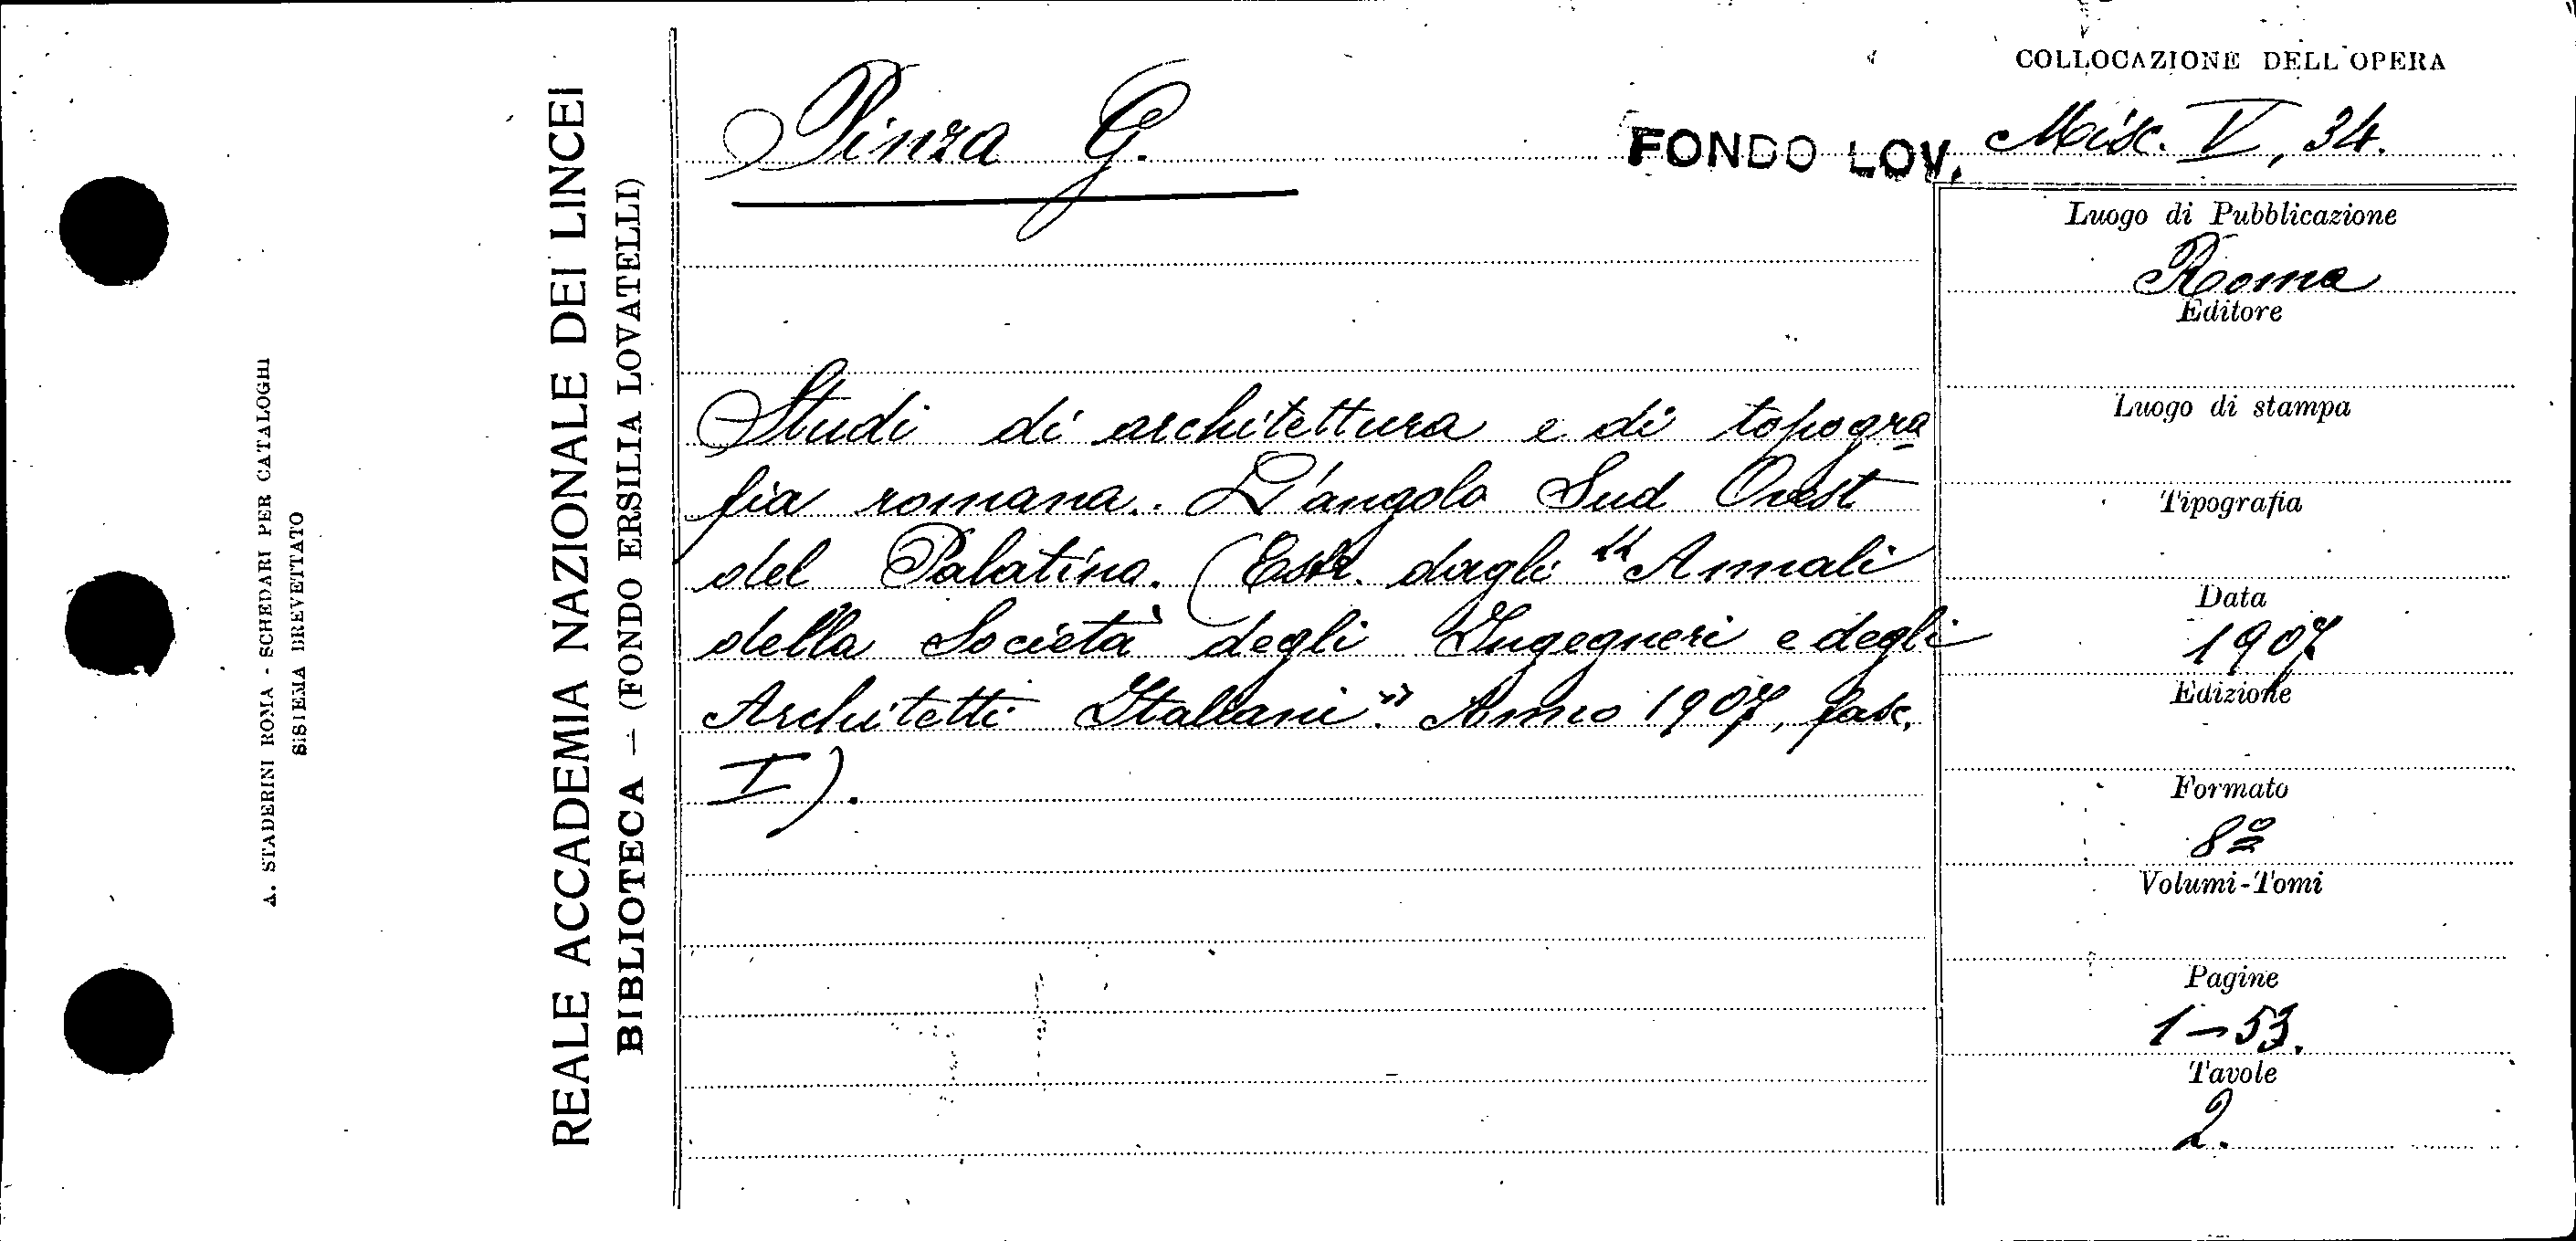 A. STADERINI ROMA - SCHEDARI PER CATALOGHI
SISTEMA BREVETTATO
REALE ACCADEMIA NAZIONALE DEI LINCEI
BIBLIOTECA — (FONDO ERSILIA LOVATELLI)
Pinza G.
Studi di architettura e di topogra
fia romana. L'angolo Sud Ovest
del Palatino. (Estr. dagli "Annali
della Società degli Ingegneri e degli
Architetti Italiani". Anno 1907, fasc.
I).
COLLOCAZIONE DELL'OPERA
FONDO LOV. Misc. V, 34.
Luogo di Pubblicazione
Roma
Editore
Luogo di stampa
Tipografia
Data
1907
Edizione
Formato
8º
Volumi-Tomi
Pagine
1-53.
Tavole
2.